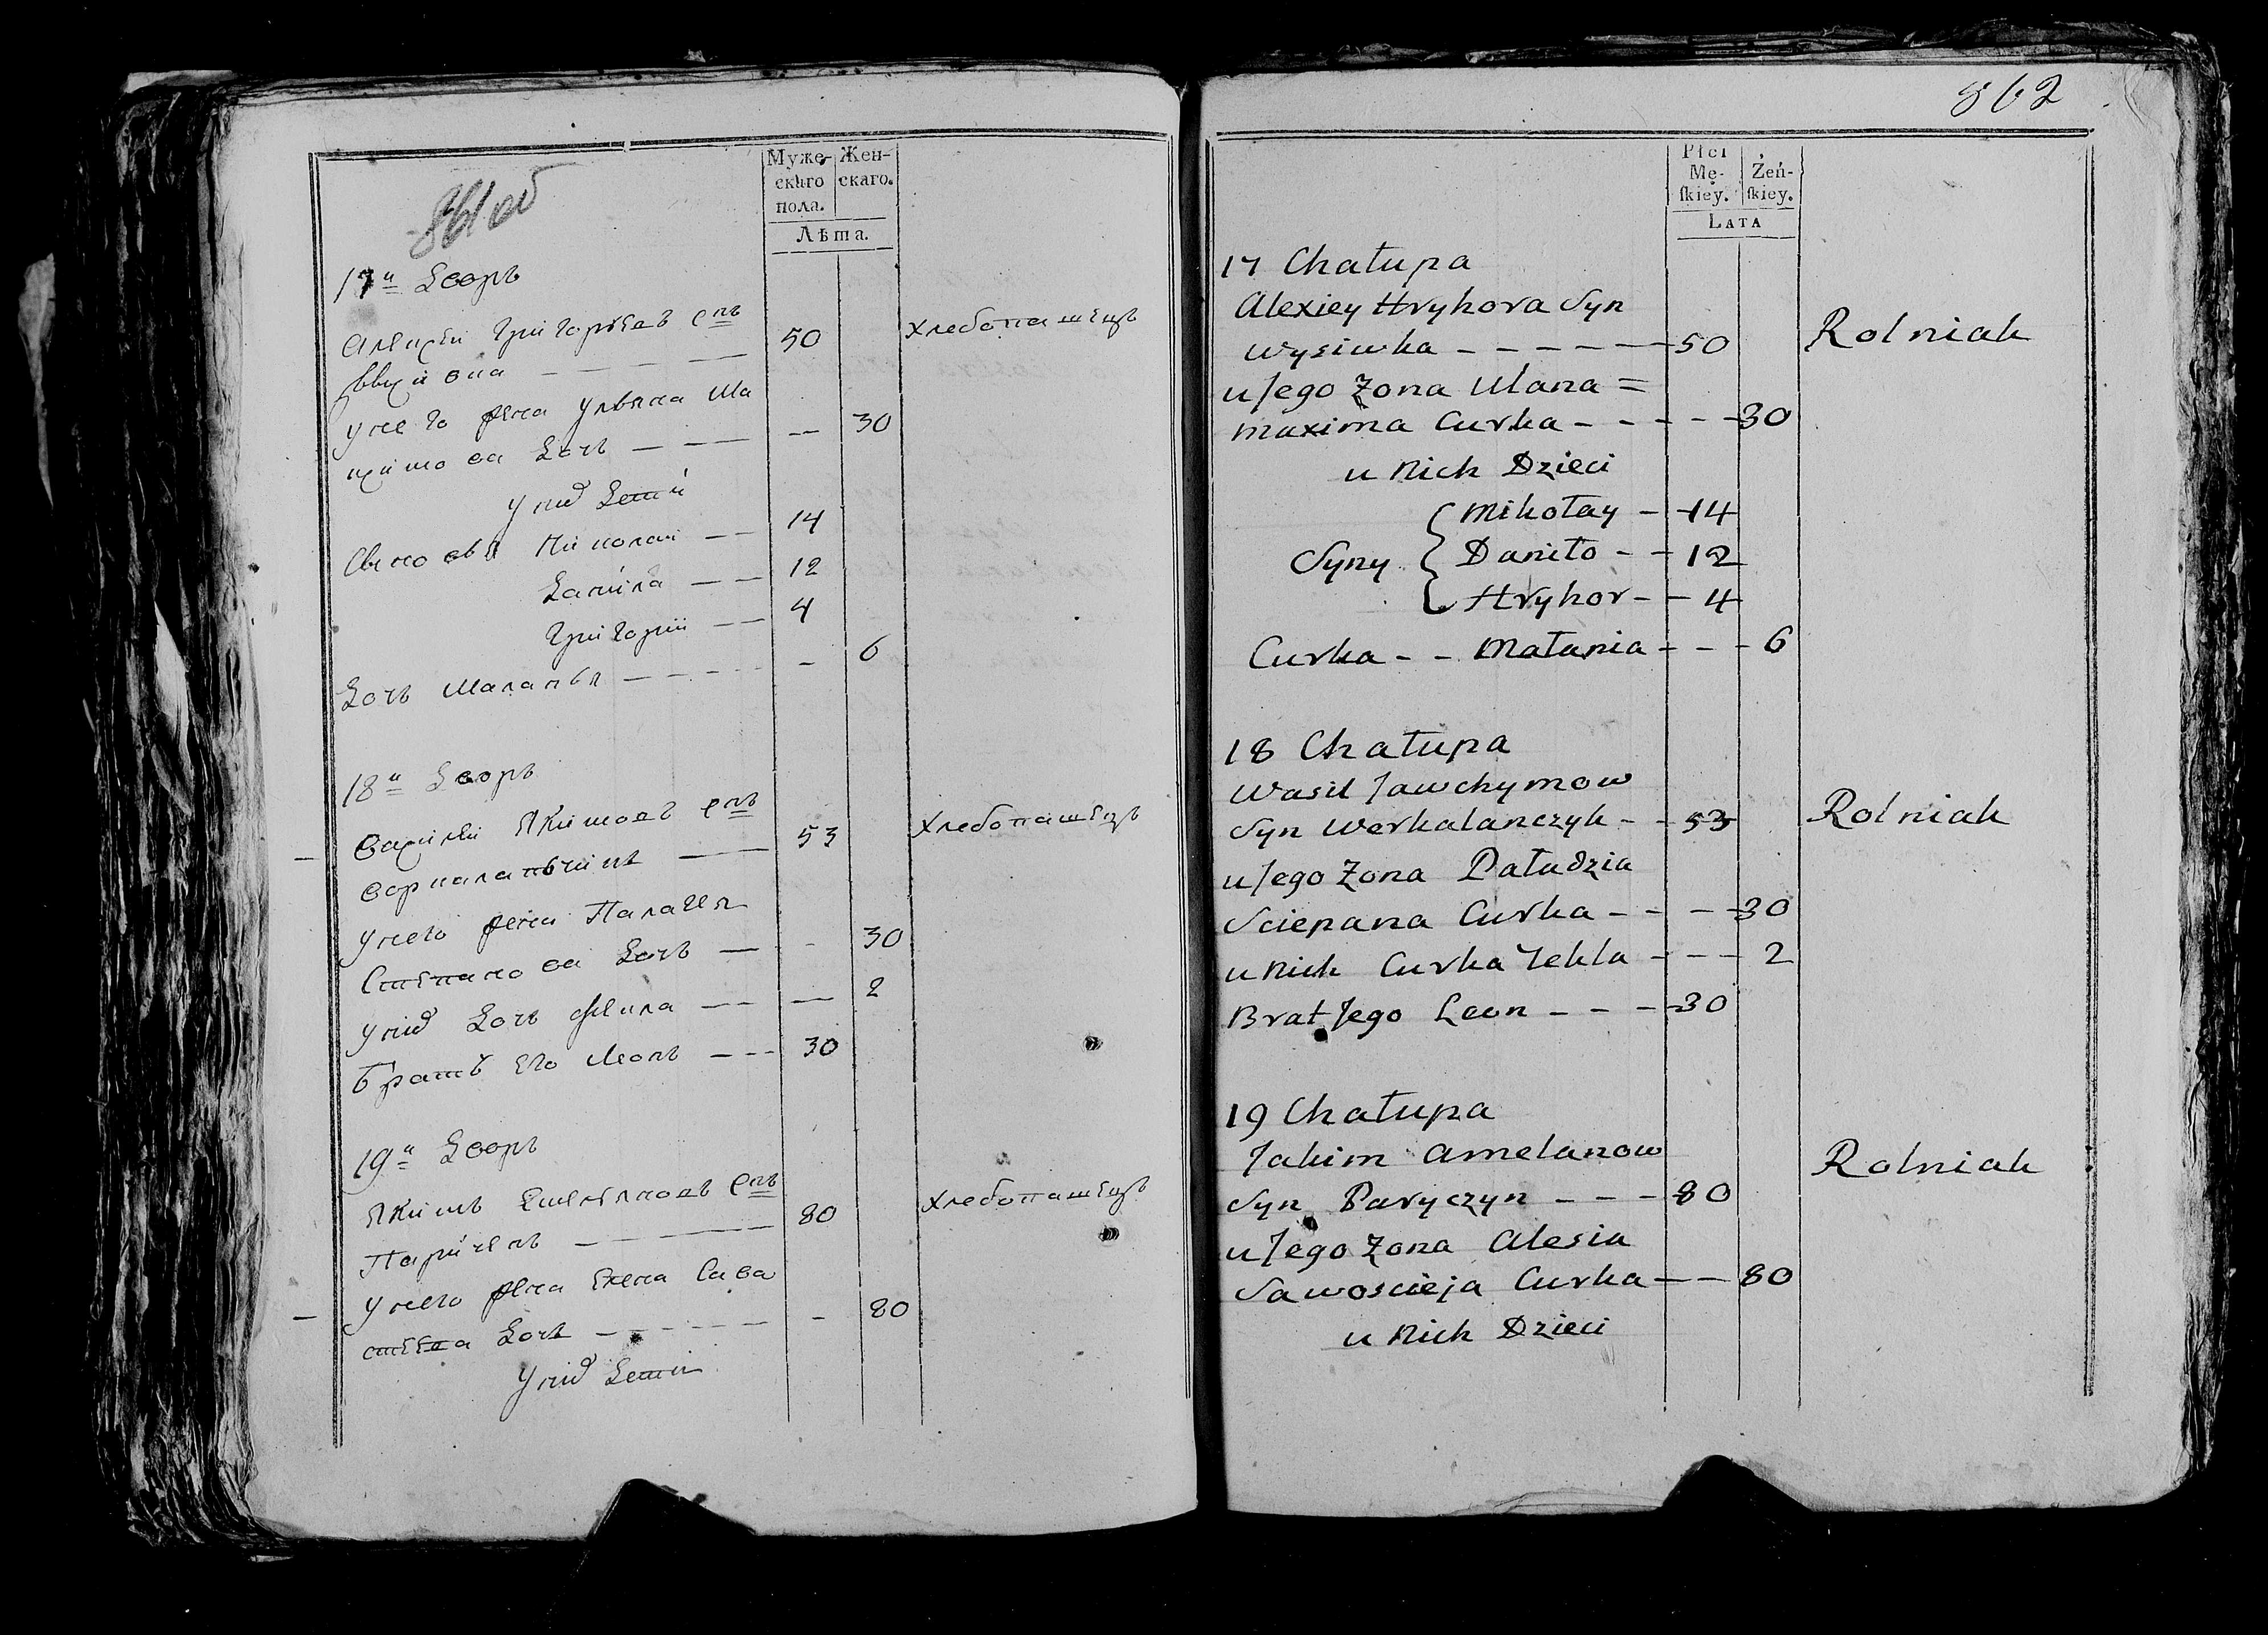 861 об
Муже-
скаго
пола.
Жен-
скаго.
Лѣта.
17й Дворъ
Алексѣй Григорьевъ снъ
50
хлебопашецъ
у него жена Ульяна Ма
ксимова дочь — — — — 30
у них дети
Сыновья Николай — — 14
Данила — — 12
Григорий — — 4
Дочь Маланья — — — — — 6
18й Дворъ
Василий Якимовъ снъ
Воркаланчикъ — 53
хлебопашецъ
у него жена Палагея
Степанова дочь — - 30
у них дочь Фекла — — — 2
братъ его Леонъ — — - 30
19й Дворъ
Якимъ Емельяновъ снъ
Паричинъ — — — — 80
хлебопашецъ
у него жена Елена Сава
стеева дочь — — — — - 80
у них дети
862
Płci
Mę-
skiey.
Żeń-
skiey.
LATA
17 Chałupa
Alexiey Hryhora Syn
Wysiwka - - - - - - 50
Rolniak
u Jego Zona Ulana =
Maxima Curka - - - - - 30
u Nich Dzieci
Mikołay - 14
Syny { Daniło - - 12
Hryhor - - 4
Curka - - Małania - - - 6
18 Chałupa
Wasil Jawchymow
Syn Werkalanczyk - - 53
Rolniak
u Jego Zona Pałudzia
Sciepana Curka - - - - 30
u Nich Curka Tekla - - - 2
Brat Jego Leon - - - - 30
19 Chałupa
Jakim Amelanow
Syn Paryczyn - - - - 80
Rolniak
u Jego Zona Alesia
Sawoscieja Curka - - 80
u Nich Dzieci